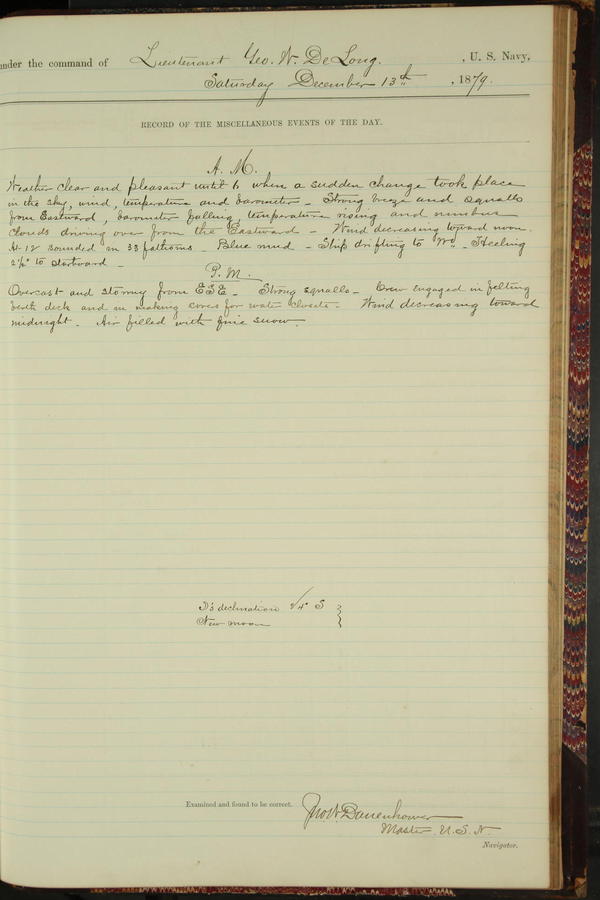 under the command of Lieutenant Geo. W. De Long. , U. S. Navy,
Saturday December 13th , 1879.
RECORD OF THE MISCELLANEOUS EVENTS OF THE DAY.
A. M.
Weather clear and pleasant until 6 when a sudden change took place
in the sky, wind, temperature and barometer - Strong breeze and squalls
from Eastward, barometer falling, temperature rising and nimbus
clouds driving over from the Eastward - Wind decreasing toward noon.
At 12 sounded in 33 fathoms - Blue mud - Ship drifting to Wd - Heeling
2½° to starboard -
P. M.
Overcast and stormy from ESE - Strong squalls - Crew engaged in felting
berth deck and in making covers for water closets - Wind decreasing toward
midnight. Air filled with fine snow.
declination S
New moon
Examined and found to be correct.
Jno. W. Danenhower
Master, U. S. N.
Navigator.